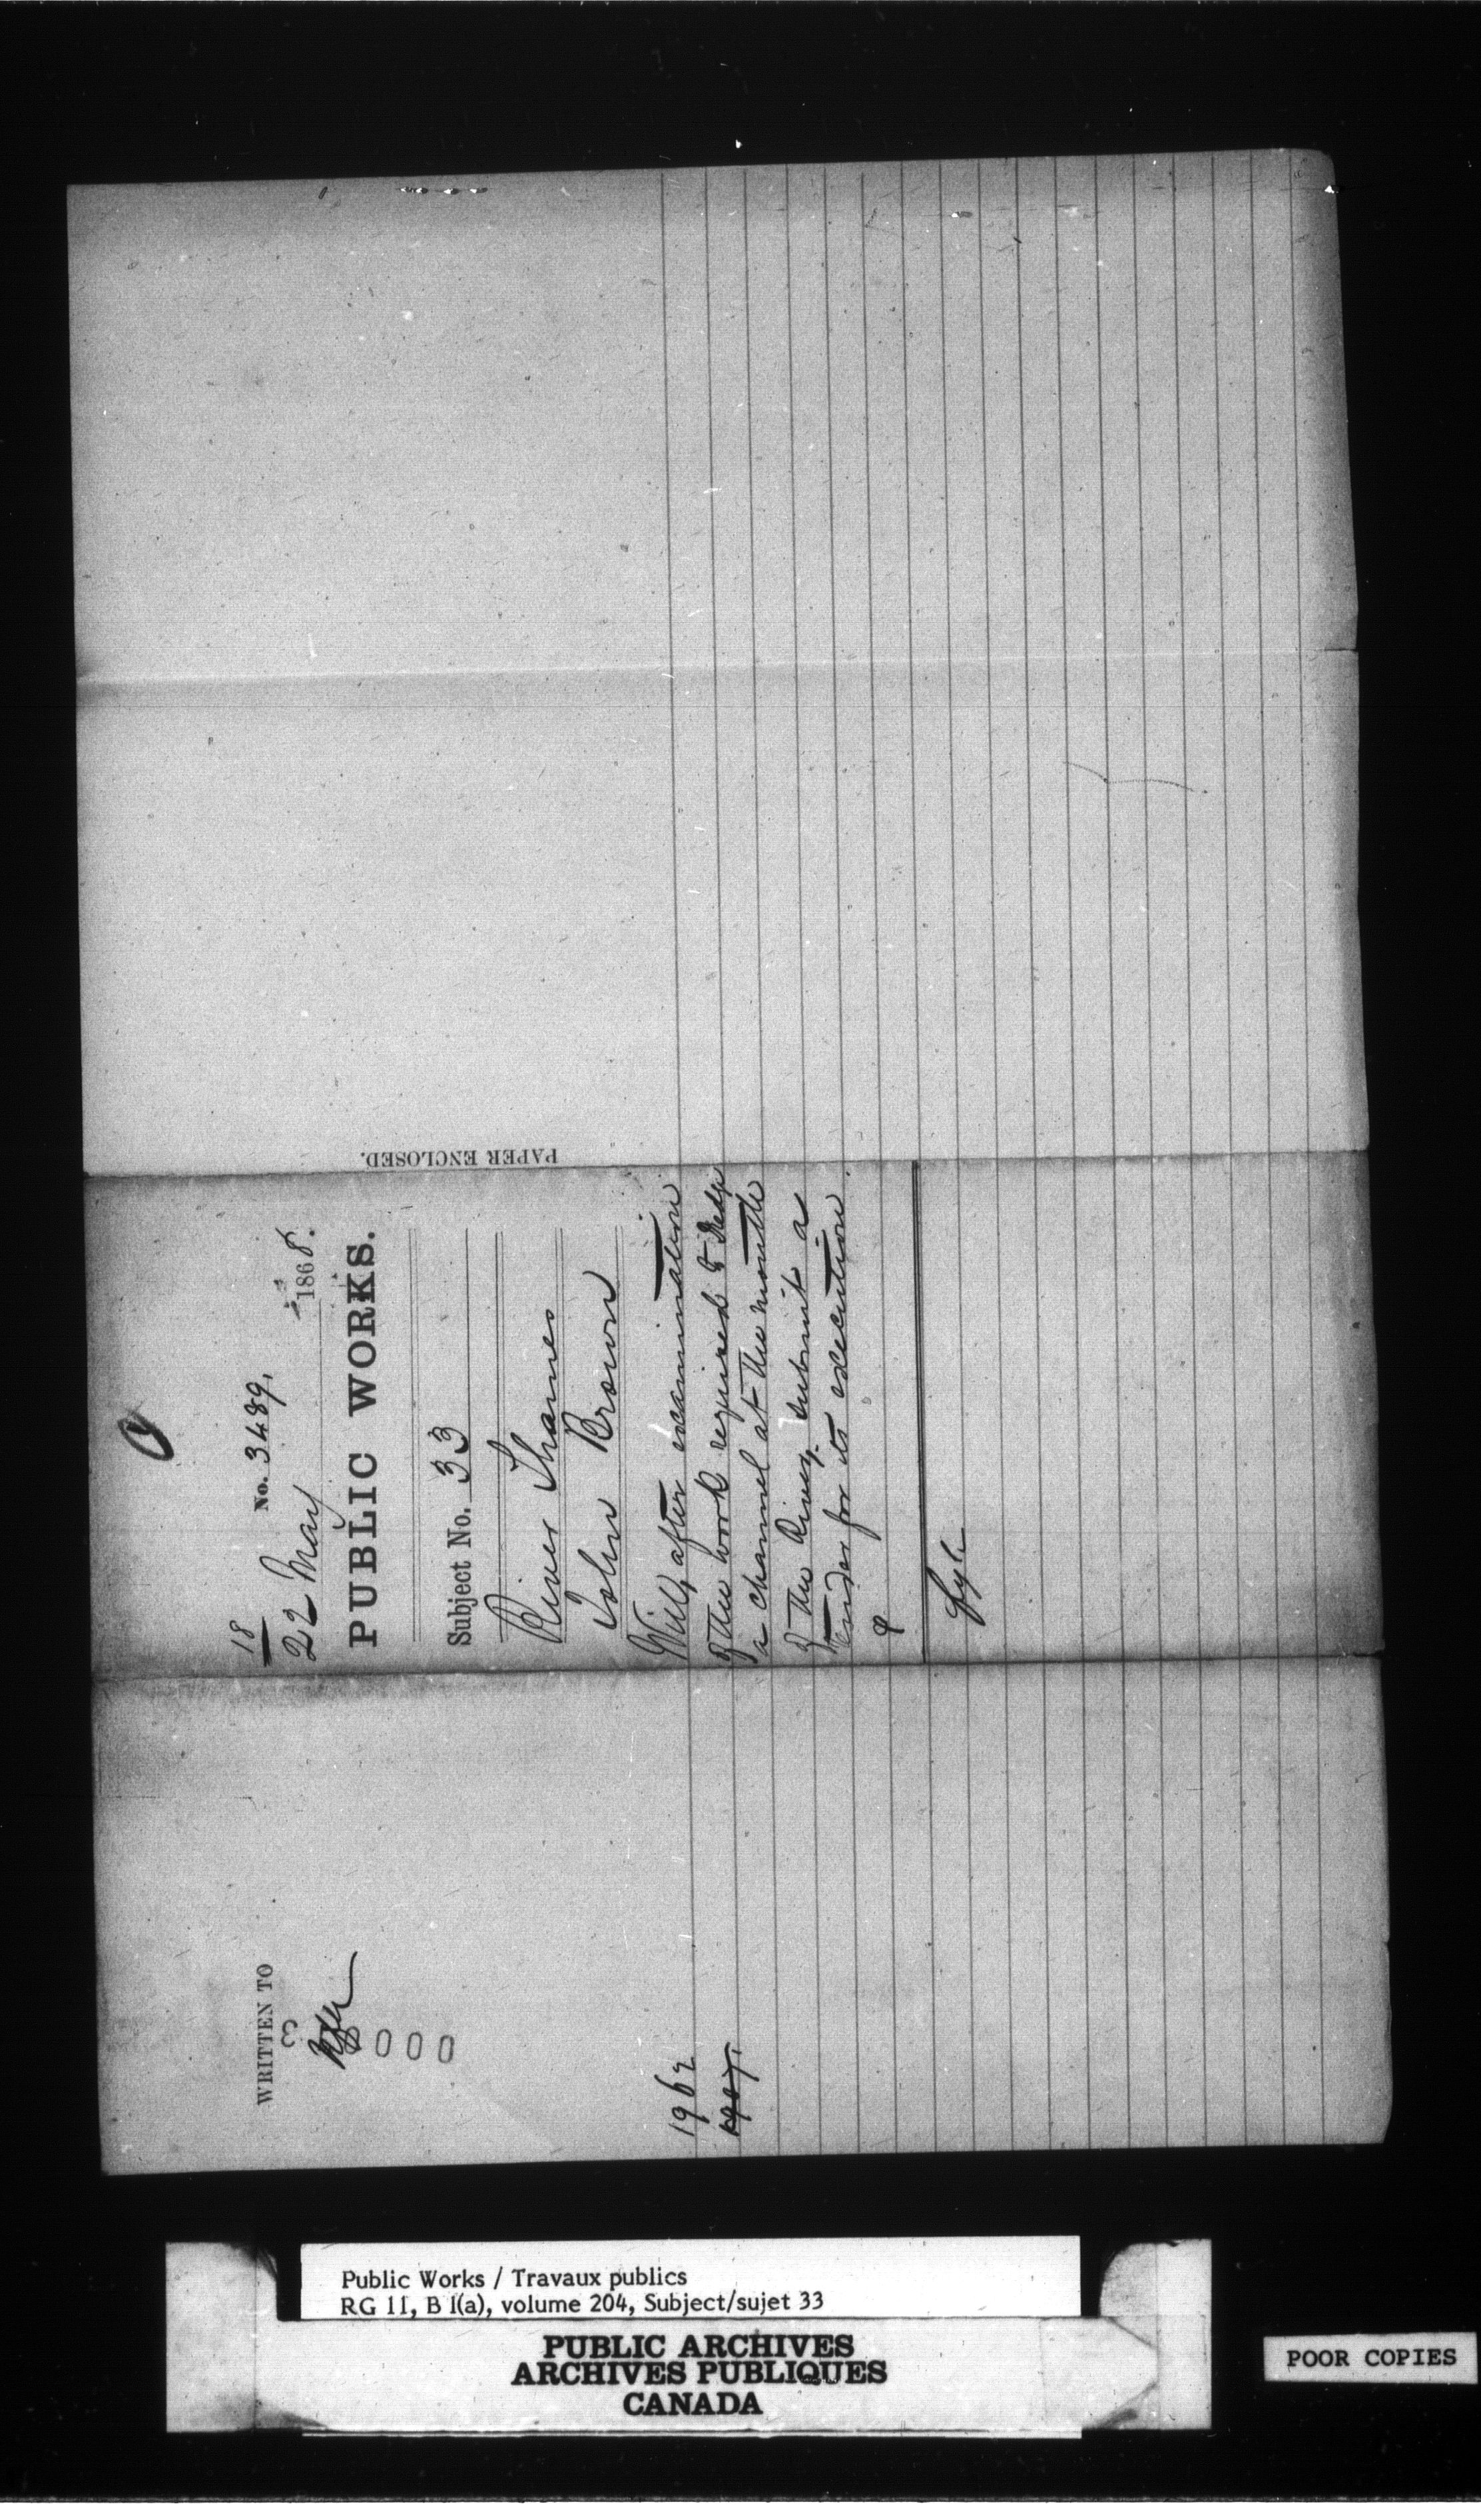 No. 3489.
18
22 May 1868.
PUBLIC WORKS.
Subject No. 33
River Thames
John Brown
Will, after examination
of the work required to dredge
a channel at the mouth
of the River, submit a
tender for its execution
Fyle
PAPER ENCLOSED.
WRITTEN TO
3
000
1962
Public Works / Travaux publics
RG 11, B 1(a), volume 204, Subject/sujet 33
PUBLIC ARCHIVES
ARCHIVES PUBLIQUES
CANADA
POOR COPIES